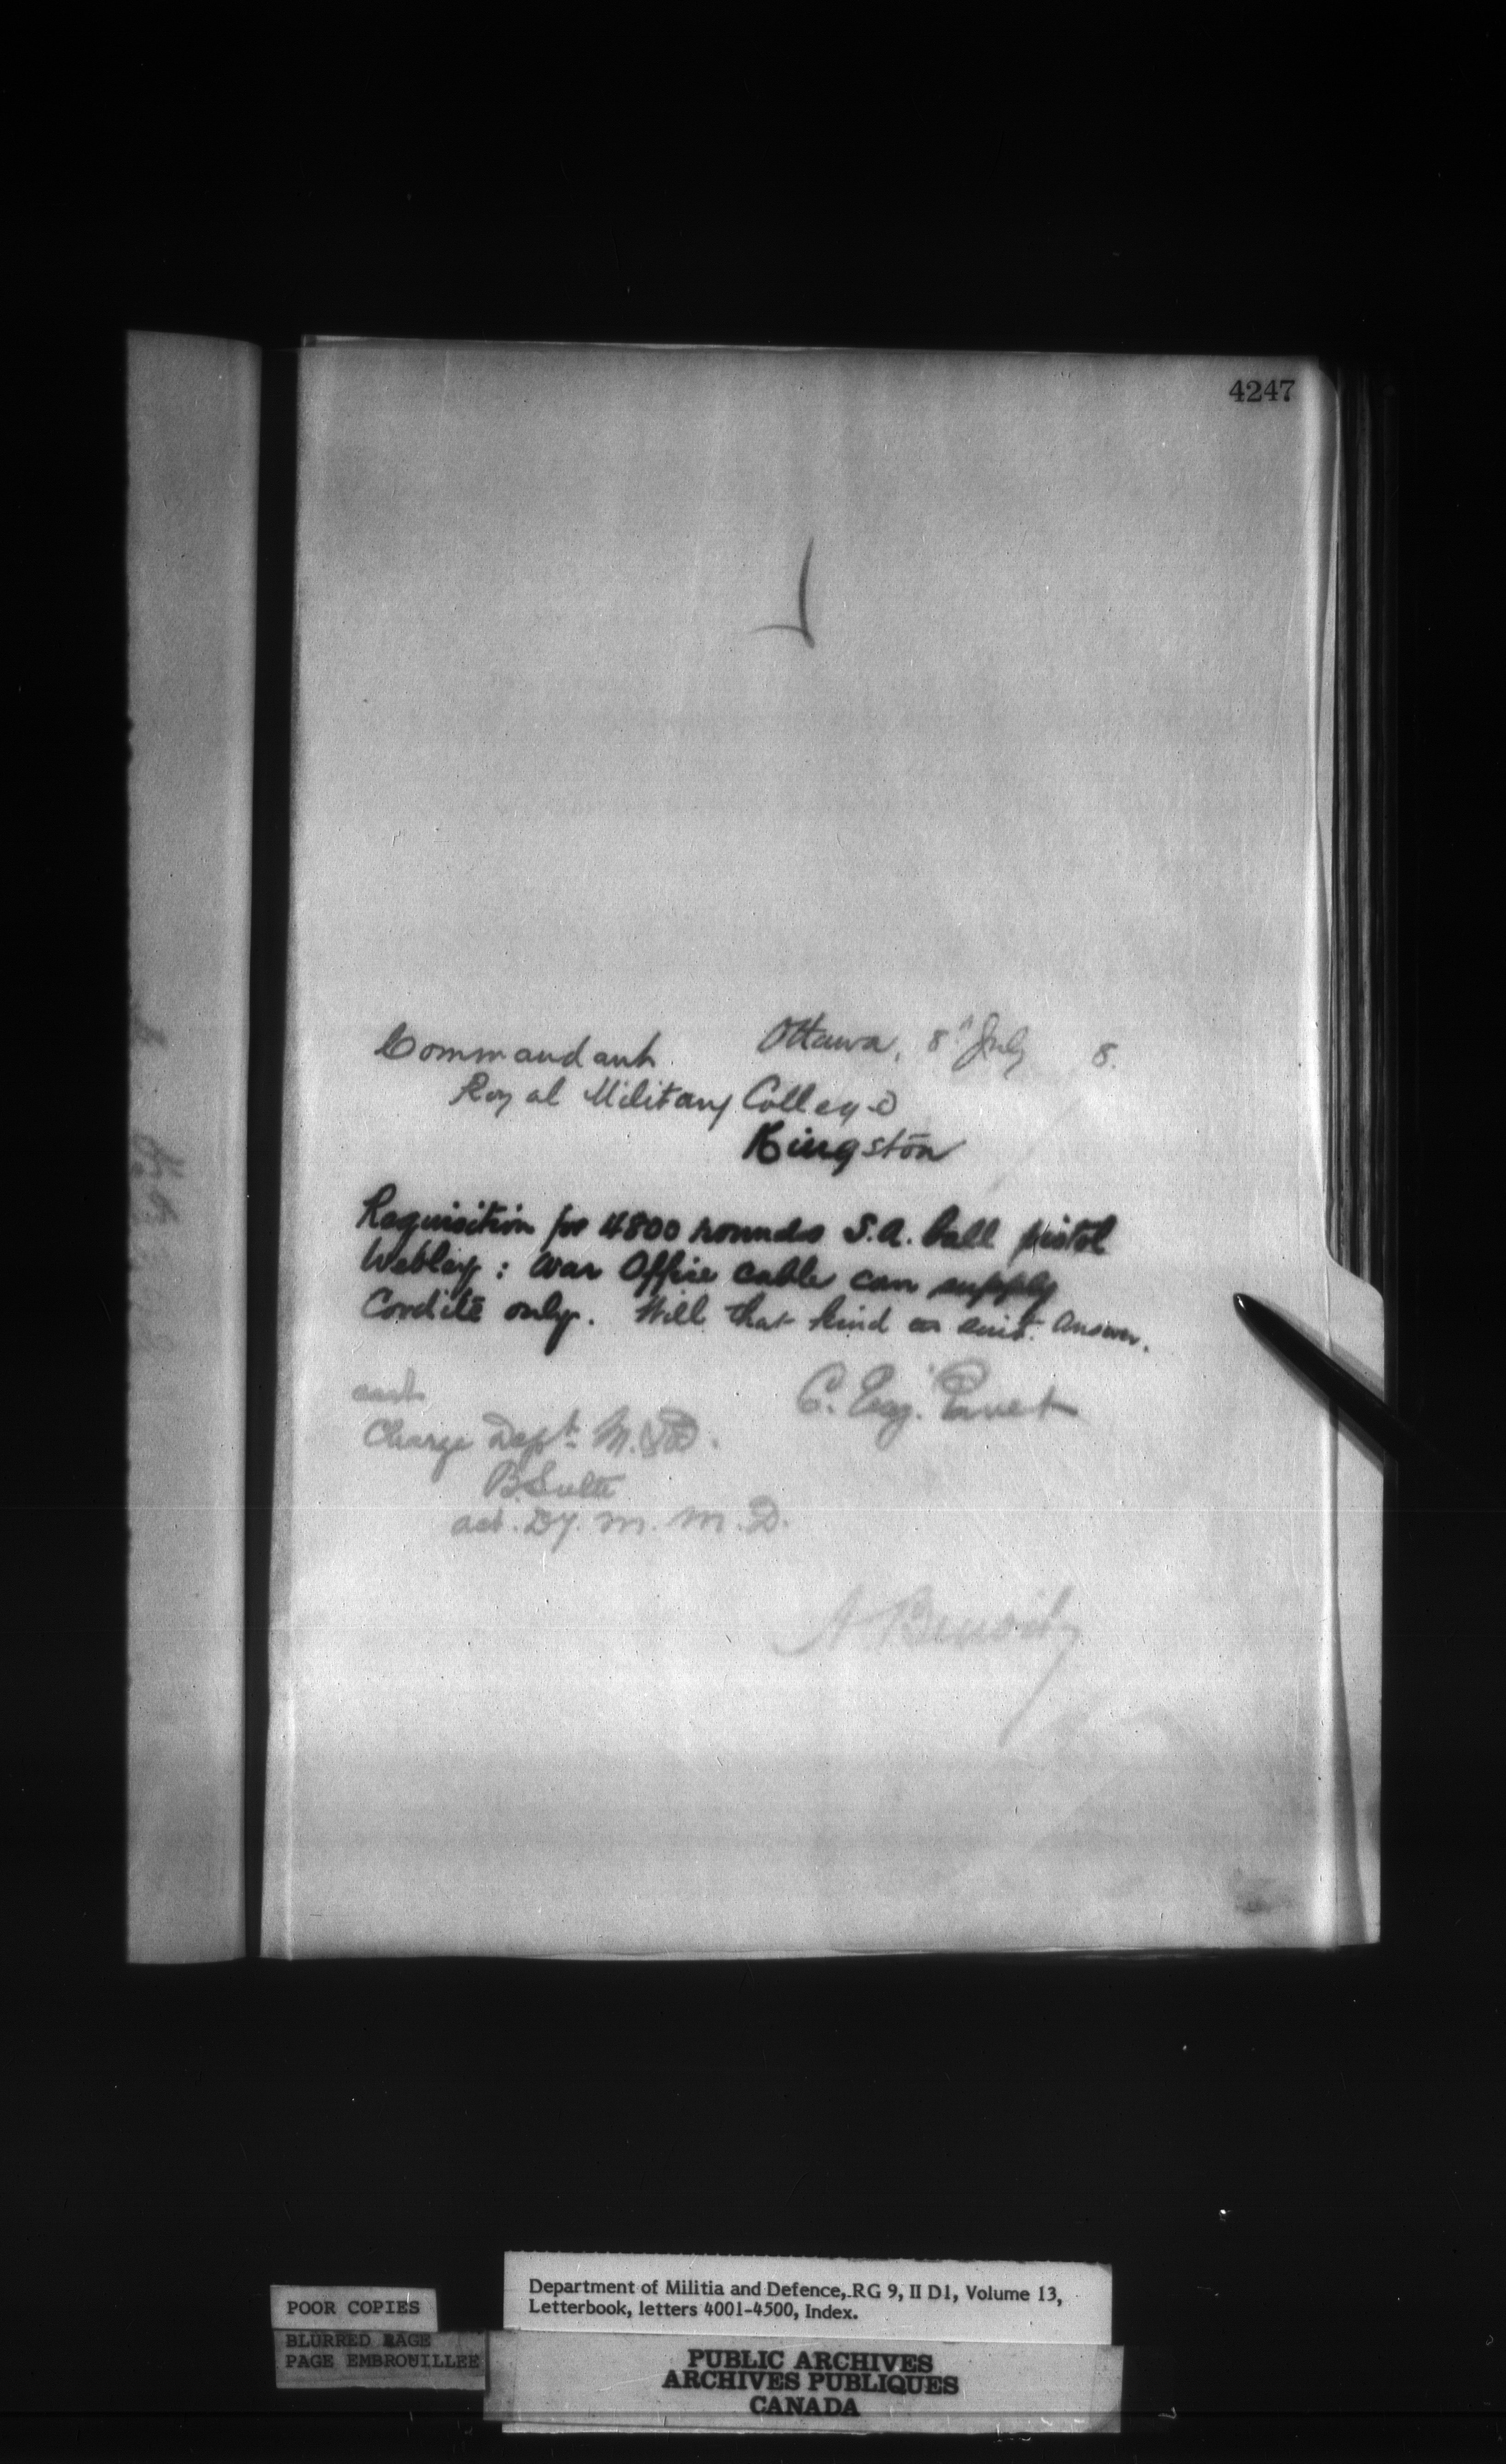 4247
Ottawa, 8th July 8.
Commandant
Royal Military College
Kingston
Requisition for 4800 rounds S.A. ball pistol
Webley: War Office cable can supply
Cordite only. Will that kind suit. Answer.
C. Eug. Panet
Charge Dept. M. & D.
B Sulte
act. Dy. M. M. D.
A Benoit
POOR COPIES
BLURRED PAGE
PAGE EMBROUILLEE
Department of Militia and Defence, RG 9, II D1, Volume 13,
Letterbook, letters 4001-4500, Index.
PUBLIC ARCHIVES
ARCHIVES PUBLIQUES
CANADA